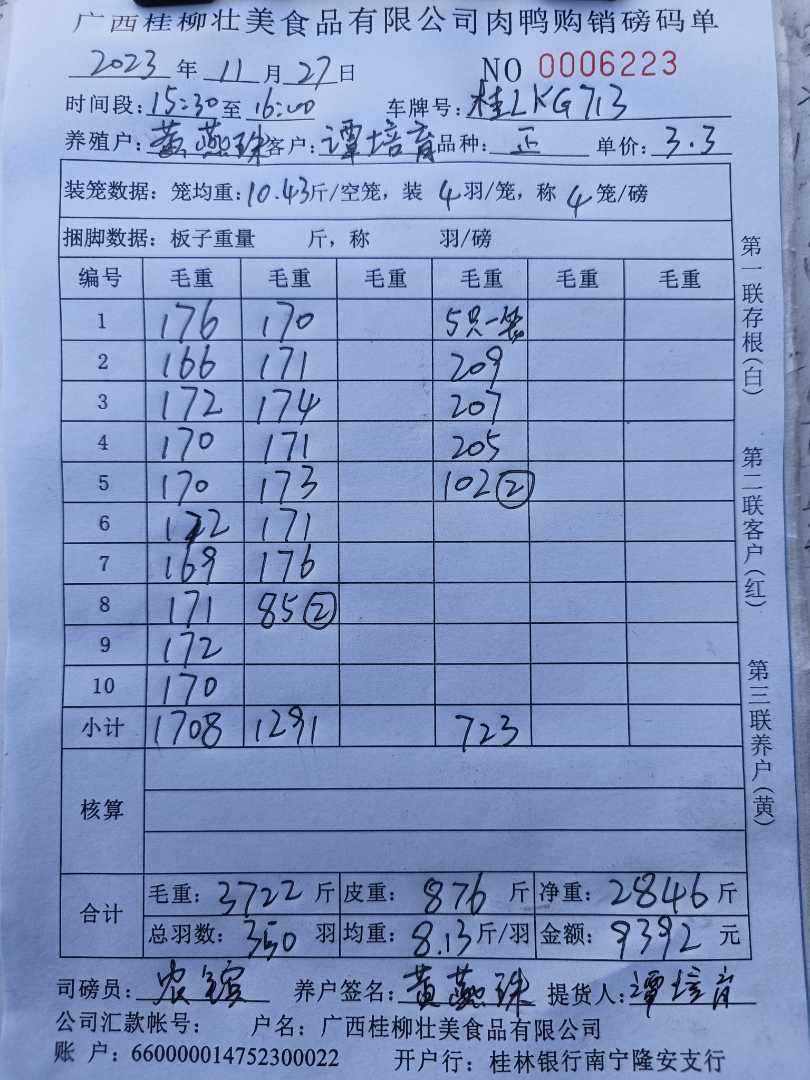 广西桂柳壮美食品有限公司肉鸭购销磅码单
2023 年 11 月 27 日 NO 0006223
时间段: 15:30 至 16:00 车牌号: 桂LKG713
养殖户: 黄燕珠 客户: 谭培育 品种: 正 单价: 3.3
装笼数据: 笼均重: 10.43 斤/空笼, 装 4 羽/笼, 称 4 笼/磅
捆脚数据: 板子重量 斤, 称 羽/磅
编号 毛重 毛重 毛重 毛重 毛重 毛重
1 176 170 5只一笼
2 166 171 209
3 172 174 207
4 170 171 205
5 170 173 102②
6 172 171
7 169 176
8 171 85②
9 172
10 170
小计 1708 1291 723
核算
合计 毛重: 3722 斤 皮重: 876 斤 净重: 2846 斤
总羽数: 350 羽 均重: 8.13 斤/羽 金额: 9392 元
司磅员: 农 养户签名: 黄燕珠 提货人: 谭培育
公司汇款帐号: 户名: 广西桂柳壮美食品有限公司
账 户: 660000014752300022 开户行: 桂林银行南宁隆安支行
第一联存根(白)
第二联客户(红)
第三联养户(黄)